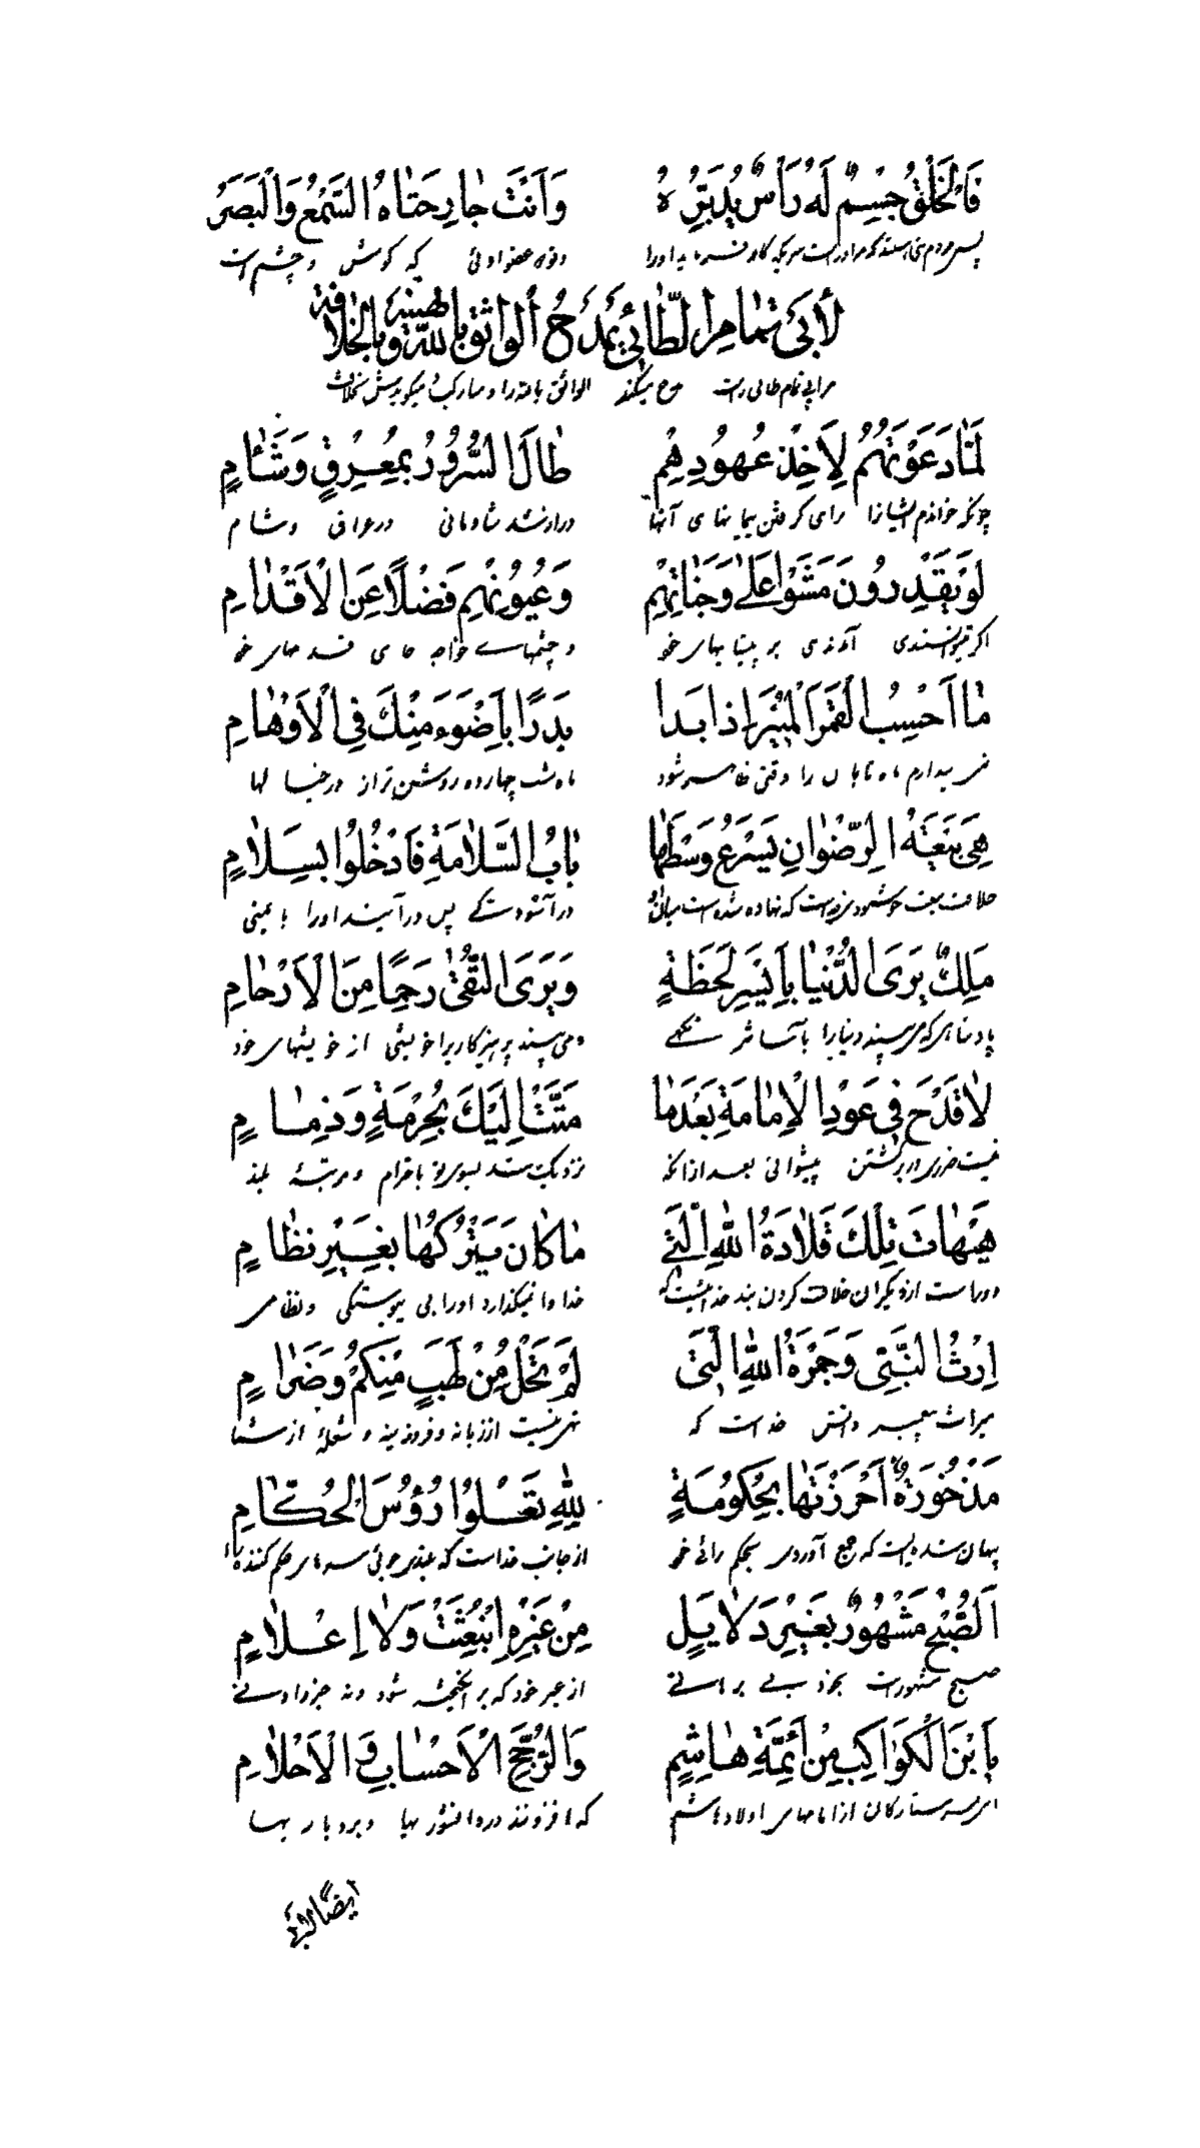 فَالْخَلْقُ جِسْمٌ لَهُ رَأْسٌ يُدَبِّرُهُ وَاَنْتَ جَارِحَتَاهُ السَّمْعُ وَالْبَصَرُ
دو عضو اوئی که گوش و چشم است
لِأَبِي تَمَّامِ الطَّائِيِّ يَمْدَحُ الْوَاثِقَ بِاللّٰهِ وَيُهَنِّيهِ بِالْخَلَافَةِ
مر ابی تمام طائی راست مدح میکند الواثق بالله را و مبارک میگوید بخلافت
لَمَّا دَعَوْتَهُمُ لِأَخْذِ عُهُودِهِمْ طَالَ السُّرُورُ بِمُعْرِقٍ وَشَآمٍ
چونکه خواندم ایشانرا برای گرفتن پیمانهای آنها دراز شد شادمانی در عراق و شام
لَوْ يَقْدِرُونَ مَشَوْا عَلٰى وَجَنَاتِهِمْ وَعُيُونِهِمْ فَضْلًا عَنِ الْاَقْدَامِ
اگر توانستندی آمدندی بر پیشانیهای خود و چشمهای خود بجای قدمهای خود
مَا اَحْسِبُ الْقَمَرَ الْمُنِيرَ اِذَا بَدَا بَدْرًا بِاَضْوَءَ مِنْكَ فِي الْاَوْهَامِ
نمی پندارم ماه تابان را وقتی ظاهر شود ماه شب چهارده روشن تر از تو در خیالها
هِيَ بَيْعَةُ الرِّضْوَانِ يُشْرَعُ وَسْطَهَا بَابُ السَّلَامَةِ فَادْخُلُوا بِسَلَامٍ
خلافت بیعت خوشنودی است که نهاده شده است میان او در آسودگی پس در آیند اورا با یمنی
مَلِكٌ يَرَى الدُّنْيَا بِاَيْسَرِ لَحْظَةٍ وَيَرَى التُّقٰى رَحِمًا مِنَ الْاَرْحَامِ
پادشاهی که می بیند دنیا را با آسانتر نگهی و می بیند پرهیزکاری را خویشی از خویشهای خود
لَا قَدْحَ فِي عَوْدِ الْاِمَامَةِ بَعْدَمَا مَتَّتْ اِلَيْكَ بِحُرْمَةٍ وَذِمَامٍ
نیست ضرری در برگشتن پیشوائی بعد از آنکه نزدیک شد بسوی تو باحترام و مرتبهٔ بلند
هَيْهَاتَ تِلْكَ قَلَادَةُ اللّٰهِ الَّتِي مَا كَانَ يَتْرُكُهَا بِغَيْرِ نِظَامٍ
دور است از دیگران خلافت گردن بند خدائیست که خدا وا نمیگذارد اورا بی پیوستگی و نظامی
اِرْثُ النَّبِيِّ وَجَمْرَةُ اللّٰهِ الَّتِي لَمْ تَخْلُ مِنْ لَهَبٍ مِنْكُمُ وَضِرَامٍ
میراث پیغمبر و آتش خداست که تهی نیست از زبانه و فروزینه و شعلهٔ از شما
مَذْخُورَةٌ اَحْرَزْتَهَا بِحُكُومَةٍ لِلّٰهِ تَعْلُوا رُؤُسَ الْحُكَّامِ
پنهان شده ایست که جمع آوردی بحکم رانی خود از جانب خداست که بلندی جوئی سرهای حکم کننده ها را
اَلصُّبْحُ مَشْهُورٌ بِغَيْرِ دَلَايِلٍ مِنْ غَيْرِهِ ابْتُعِثَتْ وَلَا اِعْلَامٍ
صبح مشهور است بجز دلیل برای از غیر خود که بر انگیخته شود و نه خبر دادنی
يَا بْنَ الْكَوَاكِبِ مِنْ اَئِمَّةِ هَاشِمٍ وَالرُّجَّحِ الْاَحْسَابِ وَ الْاَحْلَامِ
ای پسر ستارگان از امامهای اولاد هاشم که افزونند در دانشوریها و بردباریها
ایضًا لغیره